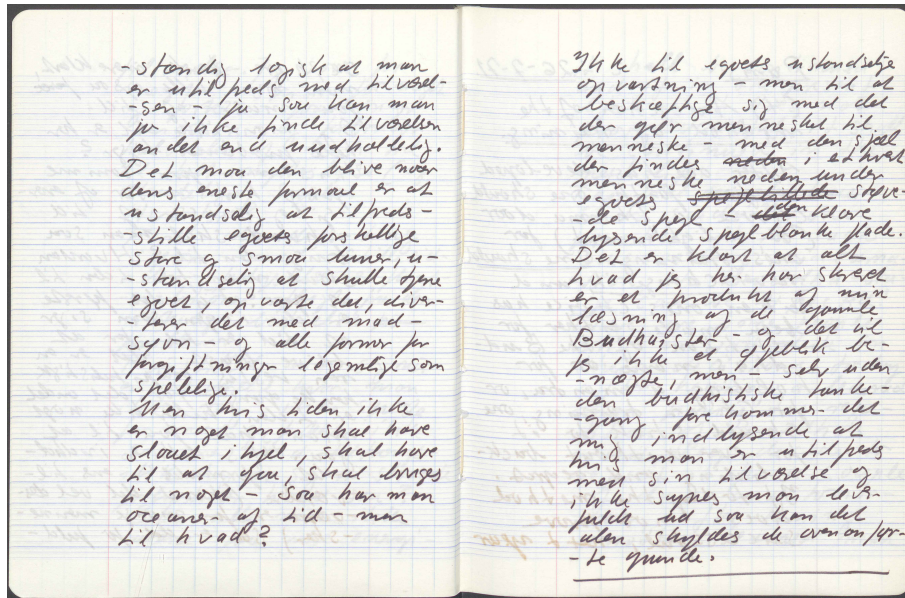 -stændig logisk at man
er utilpeds med tilværel-
-sen - ja sou kan man
jo ikke finde tilværelsen
andet end uudholdelig.
Det mou den blive nær
dens eneste formoul er at
ustandselig at tilfreds-
-stille egoets forskellige
store og smou luner, u-
-standselig at skulle tjene
egoet, opvarte det, diver-
-terer det med mad-
søvn - og alle former for
forgiftninger legemlige som
sjælelige.
Men hvis tiden ikke
er noget man skal have
slouet ihjel, skal have
til at gou, skal bruges
til noget - Sou har man
oceaner af tid - men
til hvad?
Ikke til egoets ustandselige
opvartning - men til at
beskæftige sig med det
der gør mennesket til
menneske - med den sjæl
der findes neden i ethvert
menneske neden under
egoets spejlbillede
-ede spejl - uden klare
lysende spejlblanke flade.
Det er klart at alt
hvad jeg her har skrevet
er et produkt af min
læsning af de gamle
Budhaister - og det vil
jeg ikke et øjeblik be-
-nægte, men - selv uden
den budhistiske tanke-
-gang forekommer det
mig indlysende at
hvis man er utilpeds
med sin tilværelse og
ikke synes man lever
fuldt ud sou kan det
alen skyldes de ovenanfør-
-te grunde.